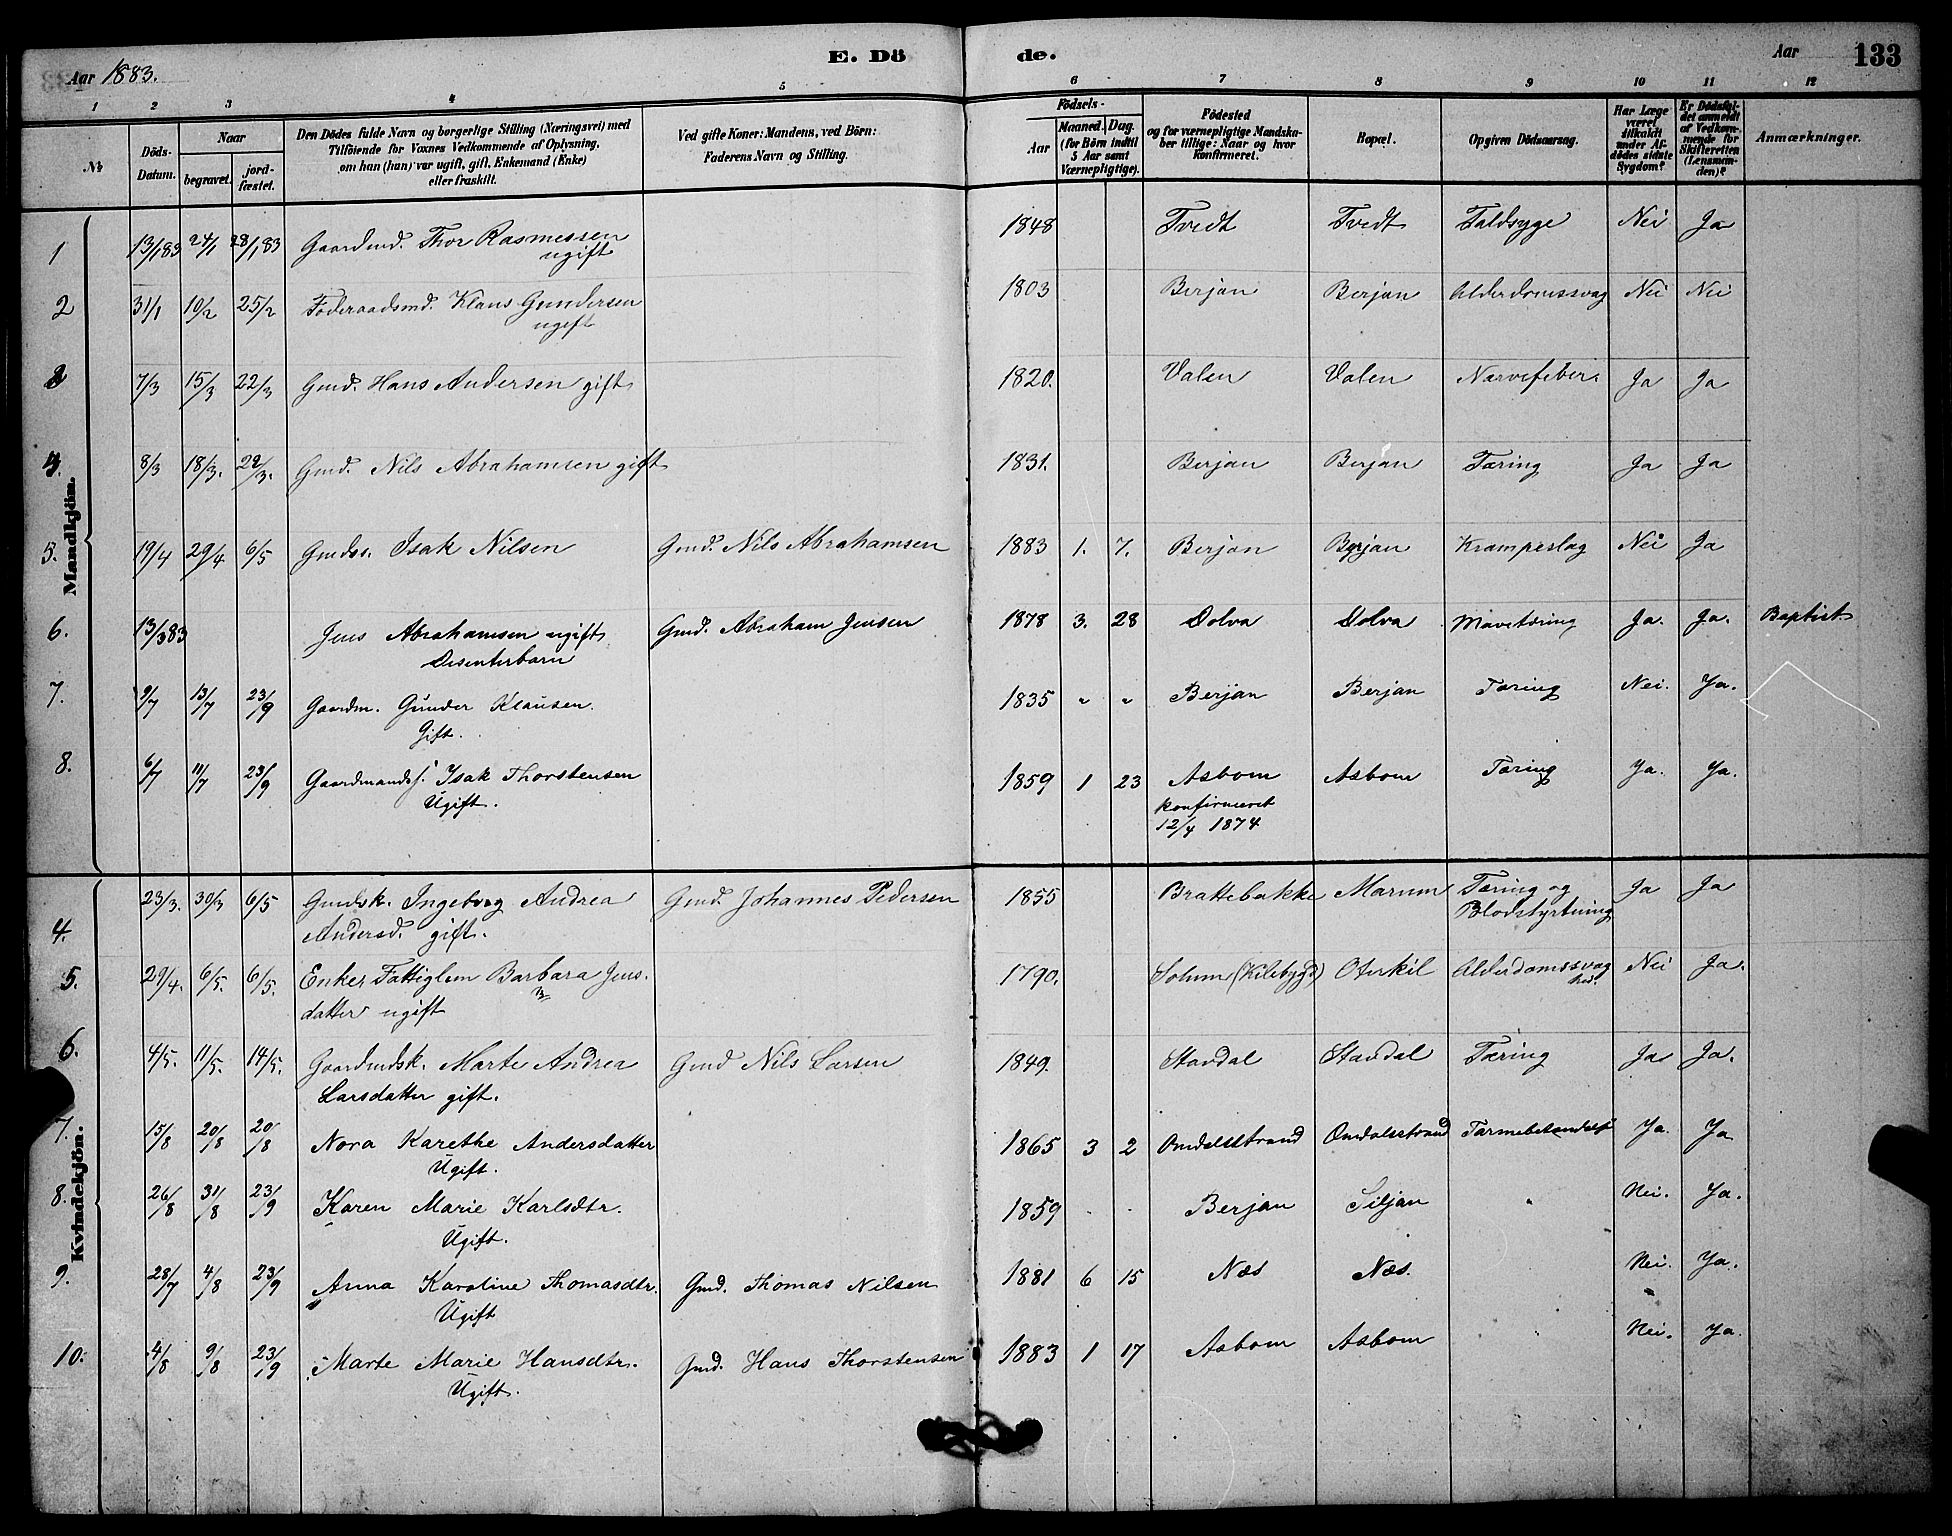 Aar 1883. E. Dö de. Aar 133
1 2 3 4 5 6 7 8 9 10 11 12
№ Döds-Datum. Naar begravet. jord-fæstet. Den Dödes fulde Navn og borgerlige Stilling (Næringsvei) med Tilföiende for Voxnes Vedkommende af Oplysning, om han (hun) var ugift, gift, Enkemand (Enke) eller fraskilt. Ved gifte Koner: Mandens, ved Börn: Faderens Navn og Stilling. Födsels- Aar Maaned. Dag. (for Börn indtil 5 Aar samt Værnepligtige). Födested og for værnepligtige Mandska-ber tillige: Naar og hvor konfirmeret. Bopæl. Opgiven Dödsaarsag. Har Læge været tilkaldt under Af-dödes sidste Sygdom? Er Dödsfal-det anmeldt af Vedkom-mende for Skifteretten (Lensman-den)? Anmærkninger.
Mandkjön.
1 13/1 83 24/1 28/1 83 Gaardmd. Thor Rasmussen 1848 Tvedt Tvedt Faldsyge Nei Ja
ugift
2 31/1 10/2 25/2 Föderaadsmd. Klaus Gundersen 1803 Berjan Berjan Alderdomssvag Nei Nei
ugift
3 7/3 15/3 22/3 Gmd. Hans Andersen gift 1820. Valen Valen Nervefeber Ja Ja
4. 8/3 18/3. 22/3. Gmd. Nils Abrahamsen gift 1831. Berjan Berjan Tæring Ja Ja
5. 19/4 29/4 6/5 Gmds. Isak Nilsen Gmd. Nils Abrahamsen 1883 1. 7. Berjan Berjan Krampeslag Nei Ja
6. 13/3 83 Jens Abrahamsen ugift Gmd. Abraham Jensen 1878 3. 28 Dolva Dolva Mavetæring Ja. Ja. Baptist
Desenterbarn
7. 9/7 13/7 23/9 Gaardm. Gunder Klausen. 1835 " " Berjan Berjan Tæring Nei. Ja.
Gift.
8. 6/7 11/7 23/9 Gaardmands. Isak Thorstensen 1859 1 23 Asbom Asbom Tæring Ja. Ja.
Ugift. konfirmeret
12/4 1874
Kvindekjön.
4. 23/3. 30/3 6/5 Gmdsk. Ingeborg Andrea Gmd. Johannes Pedersen 1855 Brattebakke Marum Tæring og Ja Ja
Andersd. gift. Blodstyrtning
5. 29/4. 6/5. 6/5. Enker Fattiglem Barbara Jens- 1790. Solum (Kilebygd) Oterkil Alderdomssvag Nei Ja.
datter ugift hed.
6. 4/5. 11/5. 14/5. Gaardmdsk. Marte Andrea Gmd Nils Larsen 1849. Stavdal Stavdal Tæring Ja Ja.
Larsdatter gift.
7. 15/8 20/8 20/8 Nora Karethe Andersdatter 1865 3 2 Omdalsstrand Omdalsstrand Ja. Ja
Ugift.
8. 26/8 31/8 23/9 Karen Marie Karlsdtr. 1859 Berjan Siljan " Nei. Ja.
Ugift.
9. 28/7 4/8 23/9 Anna Karoline Thomasdtr. Gmd. Thomas Nilsen 1881 6 15 Næs Næs. Nei. Ja.
Ugift
10. 4/8 9/8 23/9 Marte Marie Hansdtr. Gmd. Hans Thorstensen 1883 1 17 Asbom Asbom Nei. Ja.
Ugift.